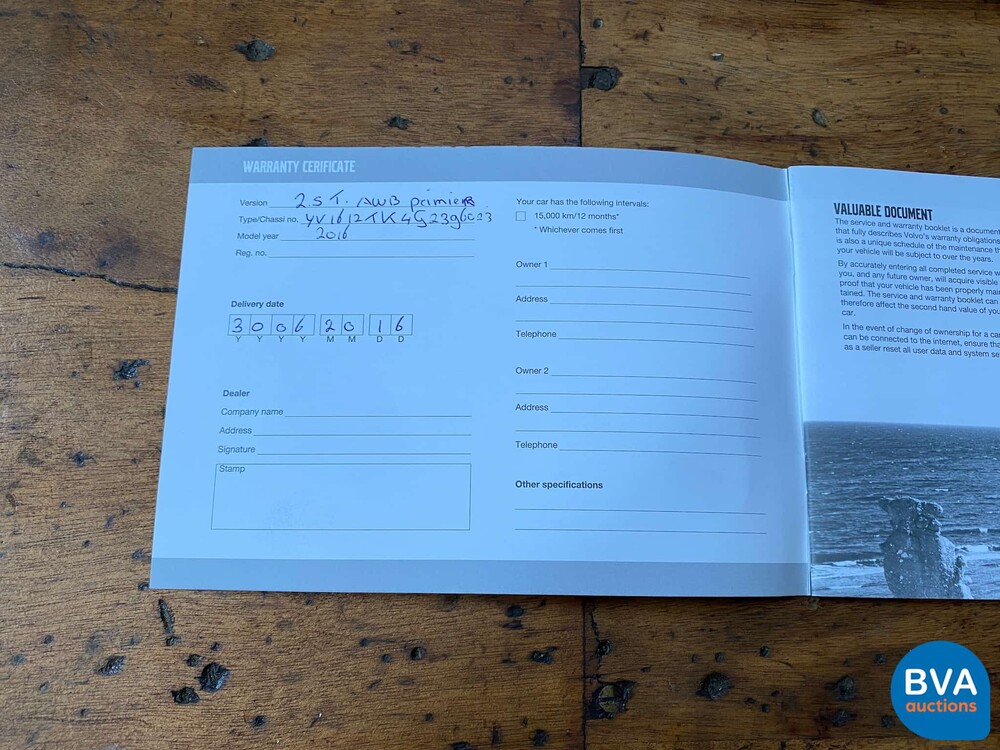 WARRANTY CERIFICATE
Version 2.5 T. AWB primiera
Type/Chassi no.
Model year 2016
Reg. no.
Delivery date
3 0 0 6 2 0 1 6
Y Y Y Y M M D D
Dealer
Company name
Address
Signature
Stamp
Your car has the following intervals:
15,000 km/12 months*
* Whichever comes first
Owner 1
Address
Telephone
Owner 2
Address
Telephone
Other specifications
VALUABLE DOCUMENT
The service and warranty booklet is a document
that fully describes Volvo's warranty obligations
is also a unique schedule of the maintenance
your vehicle will be subject to over the years.
By accurately entering all completed service
you, and any future owner, will acquire visible
proof that your vehicle has been properly
tained. The service and warranty booklet can
therefore affect the second hand value of
car.
In the event of change of ownership for a
can be connected to the internet, ensure
as a seller reset all user data and system
BVA
auctions